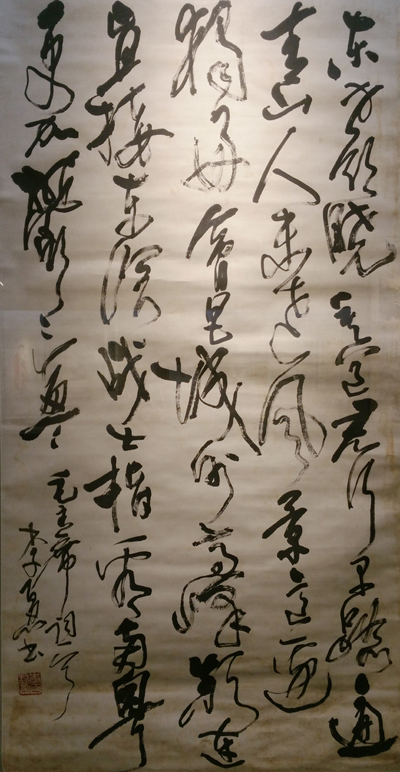 东方欲晓莫道君行早踏遍
青山人未老风景这边
独好会昌城外高峰颠连
直接东溟战士指看南粤
更加郁郁葱葱
毛主席词一首
李百忍书